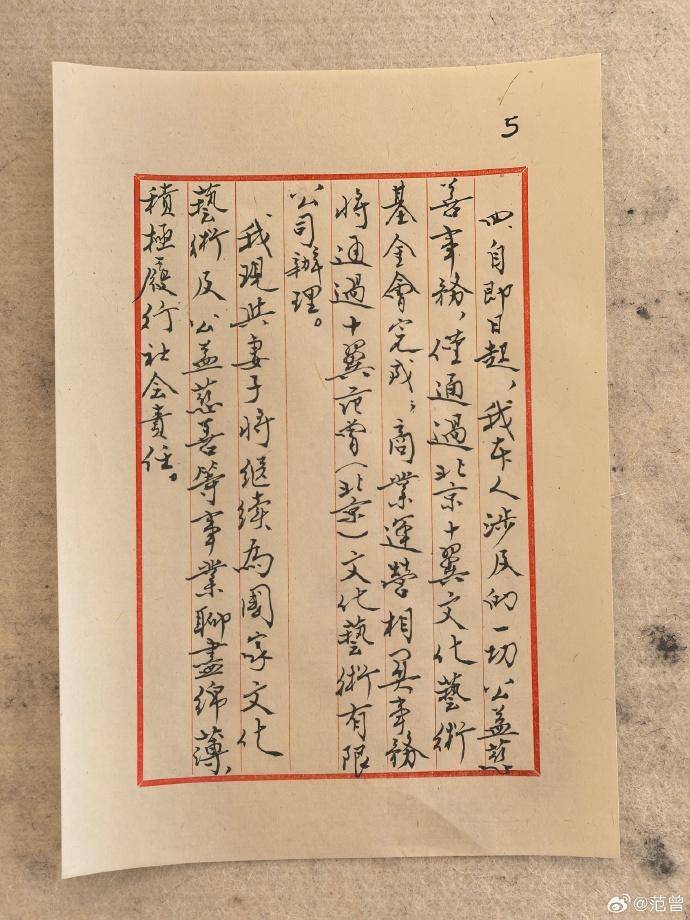 5
四、自即日起，我本人涉及的一切公益慈
善事務，僅通過北京十翼文化藝術
基金會完成；商業運營相関事務
将通過十翼范曾（北京）文化藝術有限
公司辦理。
我現與妻子将继续為國家文化
藝術及公益慈善等事業聊盡綿薄，
積極履行社会責任。
@范曾